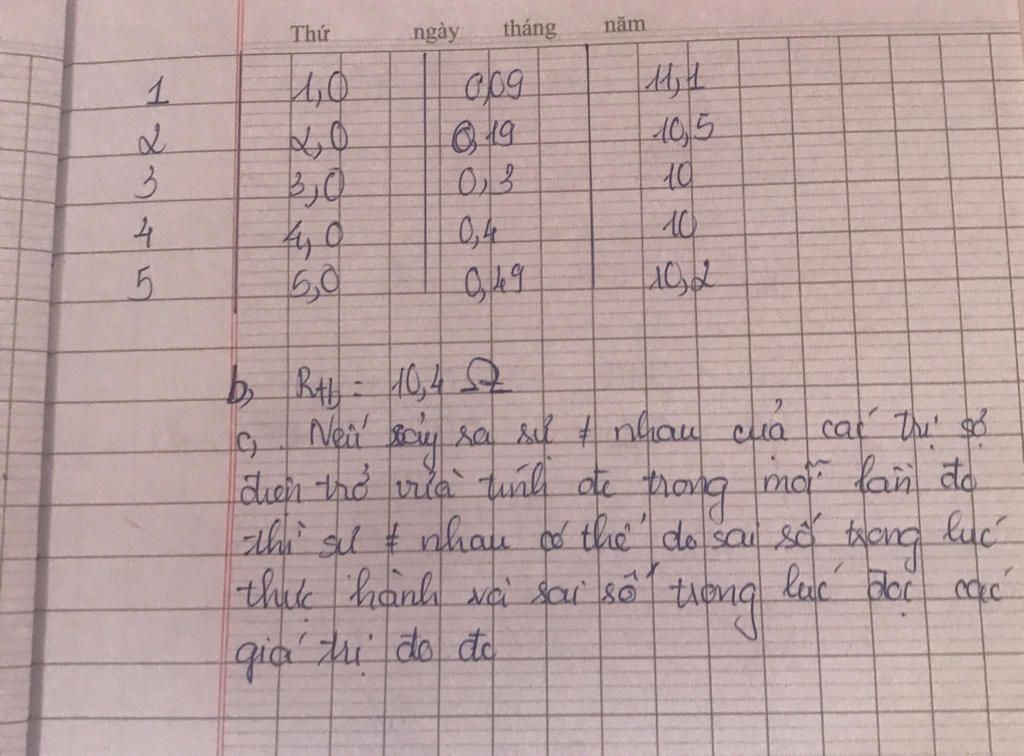 Thứ ngày tháng năm
1 1,0 0,09 11,1
2 2,0 0,19 10,5
3 3,0 0,3 10
4 4,0 0,4 10
5 5,0 0,49 10,2
b, Rtb = 10,4 Ω
c, Nếu xảy sa sự ≠ nhau của các trị số
điện trở vừa tính đc trong mỗi lần đo
thì sự ≠ nhau có thể do sai số trong lúc
thực hành và sai số trong lúc đọc các
giá trị đo đc